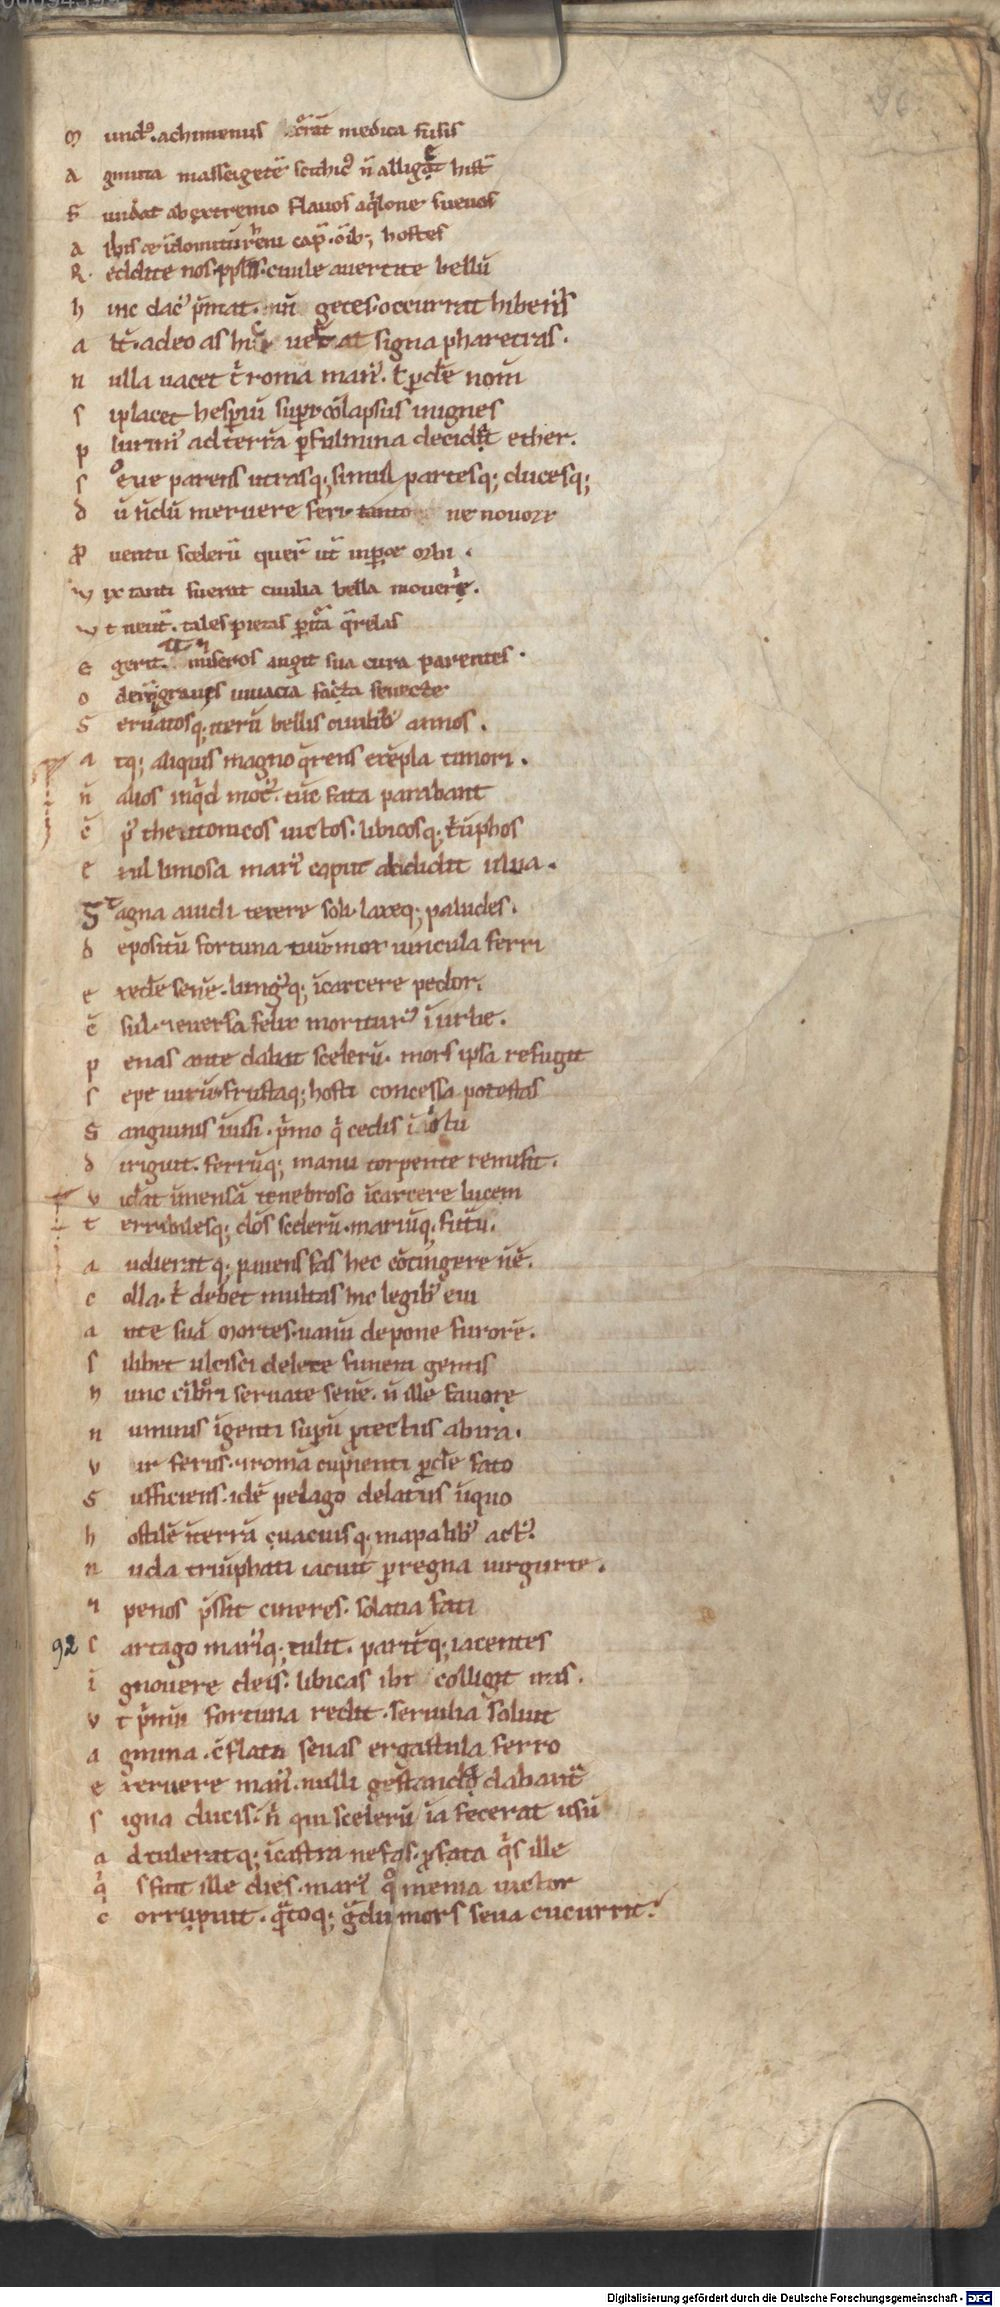 M undꝰ. achimeniis decurrat medica susis
A gmina massagetē scithicꝰ n̄ alligat histꝰ
F undat ab extremo flauos aqͥlone sueuos
A lbis ⁊ īdomitū rheni capͭ. oīb; hostes
R eddite nos ppl̄is. ciuile auertite bellū
h inc dacꝰ p̄mat. in̄ getes. occurrat hiberis
a lt̄. ad eoas hic uertat signa pharetras.
n ulla uacet tͥ roma manꝰ. ł ꝑdr̄e nom̄
s i placet hesꝑiū suꝑi cōlapsus in ignes
p lurimꝰ ad terrā ꝑ fulmina decidat ether.
s eue parens utrasq; simul partesq; ducesq;
d ū n̄dū meruere feri. tanto ne nouo
ꝓ uentu scelerū querūt uter inꝑet orbi.
v ix tanti fuerat ciuilia bella mouere.
v t neut̄. tales pietas ꝑitura qͣrelas
e gerit. at miseros angit sua cura parentes.
o derūtq; grauis uiuacia fata senecte
S eruatosq; iterū bellis ciuilibꝰ annos.
a tq; aliquis magno qͣrens exēpla timori.
n̄ alios inqͥd motꝰ. tūc fata parabant
c̄ pͥ theutonicos uictos. libicosq; tͥūphos
e xul limosa mariꝰ caput abdidit ulua.
S tagna auidi texere soli. laxeq; paludes.
d epositū fortuna tuū. mox uincula ferri
e xedēr senē. longꝰq; ī carcere pedor.
c̄ sul. ⁊ euersa felix moriturꝰ ī urbe.
p enas ante dabat scelerū. mors ipsa refugit
s epe uirū. frustaq; hosti concessa potestas
S anguinis īuisi. pͥmo qͥ cedis ī ictu
d iriguit. ferrūq; manu torpente remisit.
v idat īmensā tenebroso ī carcere lucem
t erribilesq; deos scelerū. mariūq; futūrū.
a udieratq; pauens fas hec cōtingere n̄ ē.
c olla. tͥ debet multas hic legibꝰ eui
a nte suā mortes. uanū depone furorē.
s i libet ulcisci delete funera gentis
h unc cibri seruate senē. n̄ ille fauore
n uminis īgenti suꝑū ꝓtectus ab ira.
v ir ferus. ⁊ romā cupienti ꝑdr̄e fato
S ufficiens. idē pelago delatus iniquo
h ostilē ī terrā uacuisq; mapalibꝰ actꝰ.
n uda triūphati iacuit ꝑ regna iugurte.
⁊ penos p̄ssit cineres. solatia fati
92 c artago mariꝰq; tulit. paritͬq; iacentes
i gnouere deis. libicas ibi colligit iras.
v t pͥmū fortuna redit. seruilia soluit
a gmina. c̄flato seuas ergastula ferro
e xeruere manꝰ. nulli gestanda dabant̄
s igna ducis. nͥ qui scelerū iā fecerat usū
a dtuleratq; ī castra nefas. ꝓ fata qͥs ille
qͥ s fuit ille dies. mariꝰ qͦ menia uictor
c orrupuit. qͣntoq; gͣdu mors seua cucurrit.
Digitalisierung gefördert durch die Deutsche Forschungsgemeinschaft - DFG